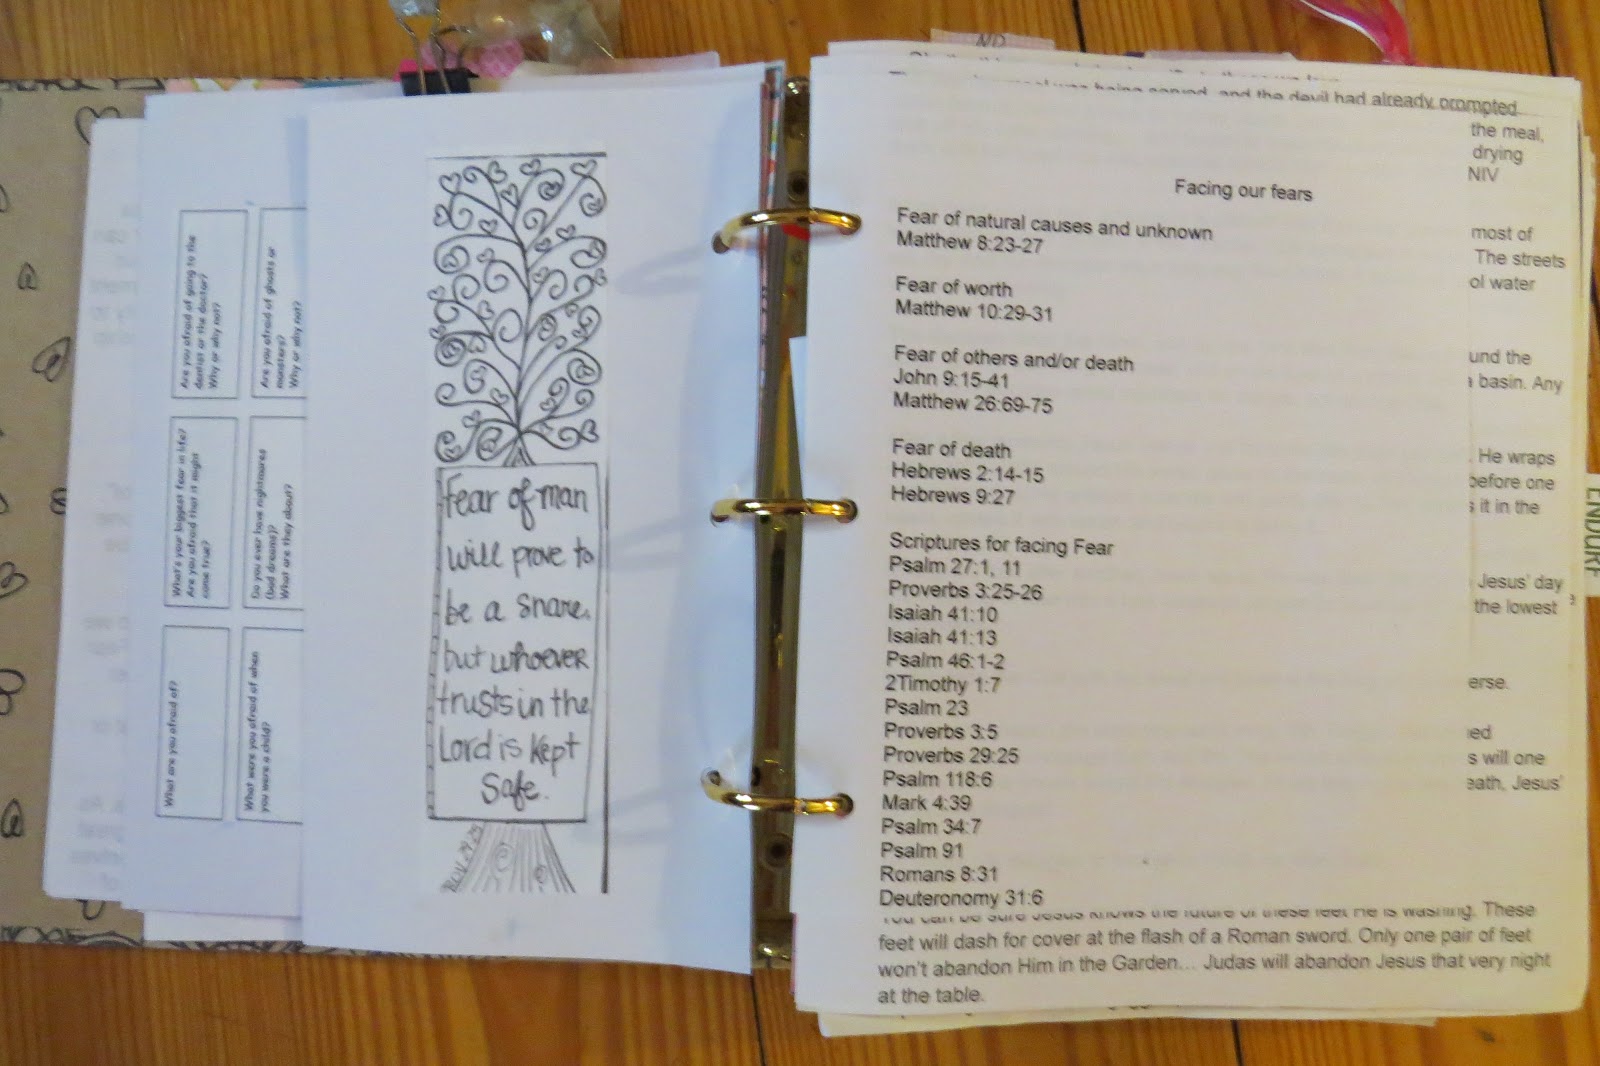 Are you afraid of going to the
dentist or the doctor?
Why or why not?
Are you afraid of ghosts or
monsters?
Why or why not?
What's your biggest fear in life?
Are you afraid that is might
come true?
Do you ever have nightmares
(bad dreams)?
What are they about?
What are you afraid of?
What were you afraid of when
you were a child?
Fear of man
will prove to
be a snare,
but whoever
trusts in the
Lord is kept
Safe.
ND
being served, and the devil had already prompted
the meal,
drying
NIV
most of
The streets
ol water
und the
a basin. Any
He wraps
before one
s it in the
Jesus' day
the lowest
erse.
ied
s will one
eath, Jesus'
Facing our fears
Fear of natural causes and unknown
Matthew 8:23-27
Fear of worth
Matthew 10:29-31
Fear of others and/or death
John 9:15-41
Matthew 26:69-75
Fear of death
Hebrews 2:14-15
Hebrews 9:27
Scriptures for facing Fear
Psalm 27:1, 11
Proverbs 3:25-26
Isaiah 41:10
Isaiah 41:13
Psalm 46:1-2
2Timothy 1:7
Psalm 23
Proverbs 3:5
Proverbs 29:25
Psalm 118:6
Mark 4:39
Psalm 34:7
Psalm 91
Romans 8:31
Deuteronomy 31:6
You can be sure Jesus knows the future of these feet He is washing. These
feet will dash for cover at the flash of a Roman sword. Only one pair of feet
won't abandon Him in the Garden... Judas will abandon Jesus that very night
at the table.
ENDURE